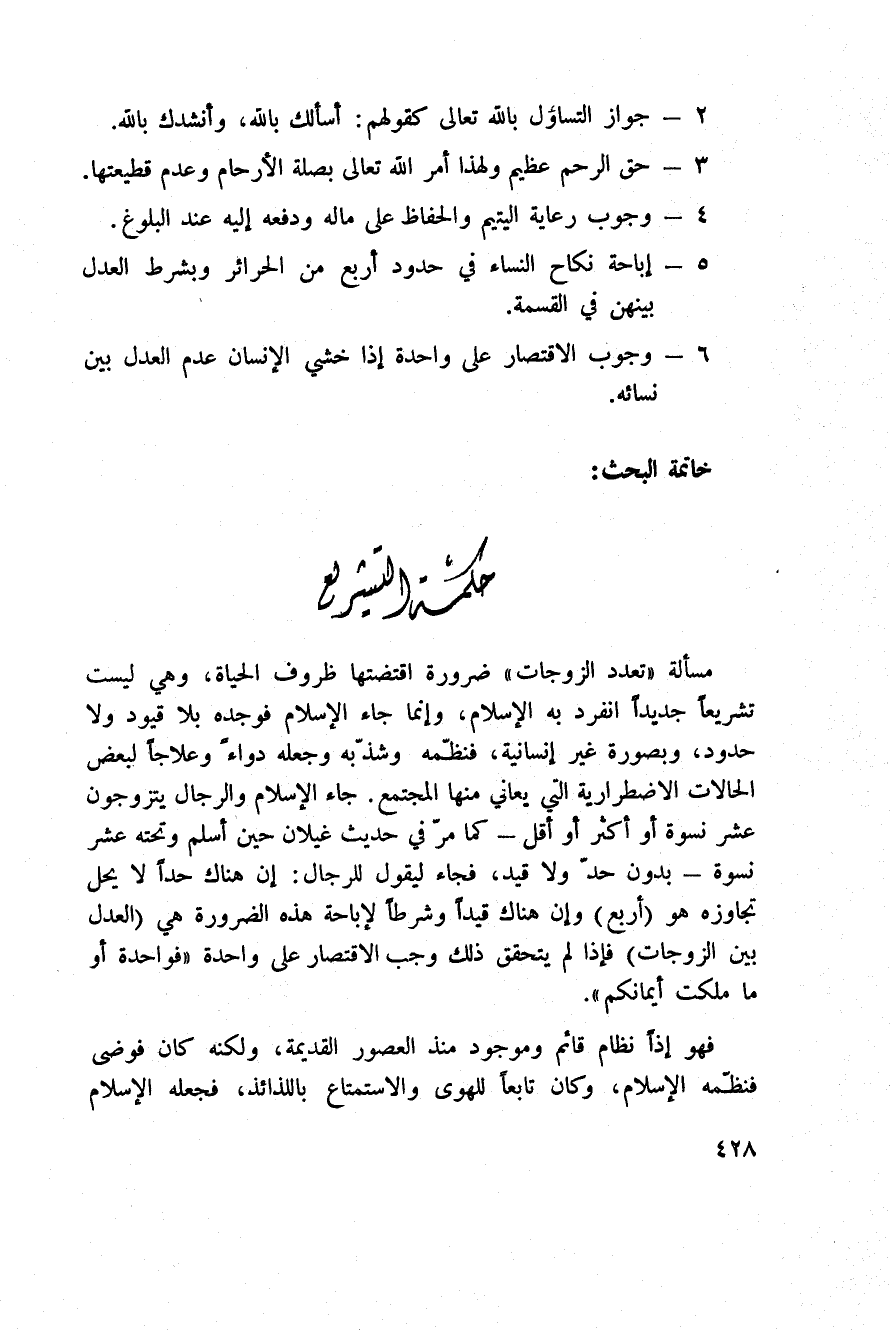 ٢ – جواز التساؤل بالله تعالى كقولهم: أسألك بالله، وأنشدك بالله.
٣ – حق الرحم عظيم ولهذا أمر الله تعالى بصلة الأرحام وعدم قطيعتها.
٤ – وجوب رعاية اليتيم والحفاظ على ماله ودفعه إليه عند البلوغ.
٥ – إباحة نكاح النساء في حدود أربع من الحرائر وبشرط العدل
بينهن في القسمة.
٦ – وجوب الاقتصار على واحدة إذا خشي الإنسان عدم العدل بين
نسائه.
خاتمة البحث:
حكمة التشريع
مسألة «تعدد الزوجات» ضرورة اقتضتها ظروف الحياة، وهي ليست
تشريعاً جديداً انفرد به الإسلام، وإنما جاء الإسلام فوجده بلا قيود ولا
حدود، وبصورة غير إنسانية، فنظّمه وشذّبه وجعله دواءً وعلاجاً لبعض
الحالات الاضطرارية التي يعاني منها المجتمع. جاء الإسلام والرجال يتزوجون
عشر نسوة أو أكثر أو أقل – كما مرّ في حديث غيلان حين أسلم وتحته عشر
نسوة – بدون حدّ ولا قيد، فجاء ليقول للرجال: إن هناك حداً لا يحل
تجاوزه هو (أربع) وإن هناك قيداً وشرطاً لإباحة هذه الضرورة هي (العدل
بين الزوجات) فإذا لم يتحقق ذلك وجب الاقتصار على واحدة «فواحدة أو
ما ملكت أيمانكم».
فهو إذاً نظام قائم وموجود منذ العصور القديمة، ولكنه كان فوضى
فنظّمه الإسلام، وكان تابعاً للهوى والاستمتاع باللذائذ، فجعله الإسلام
٤٢٨